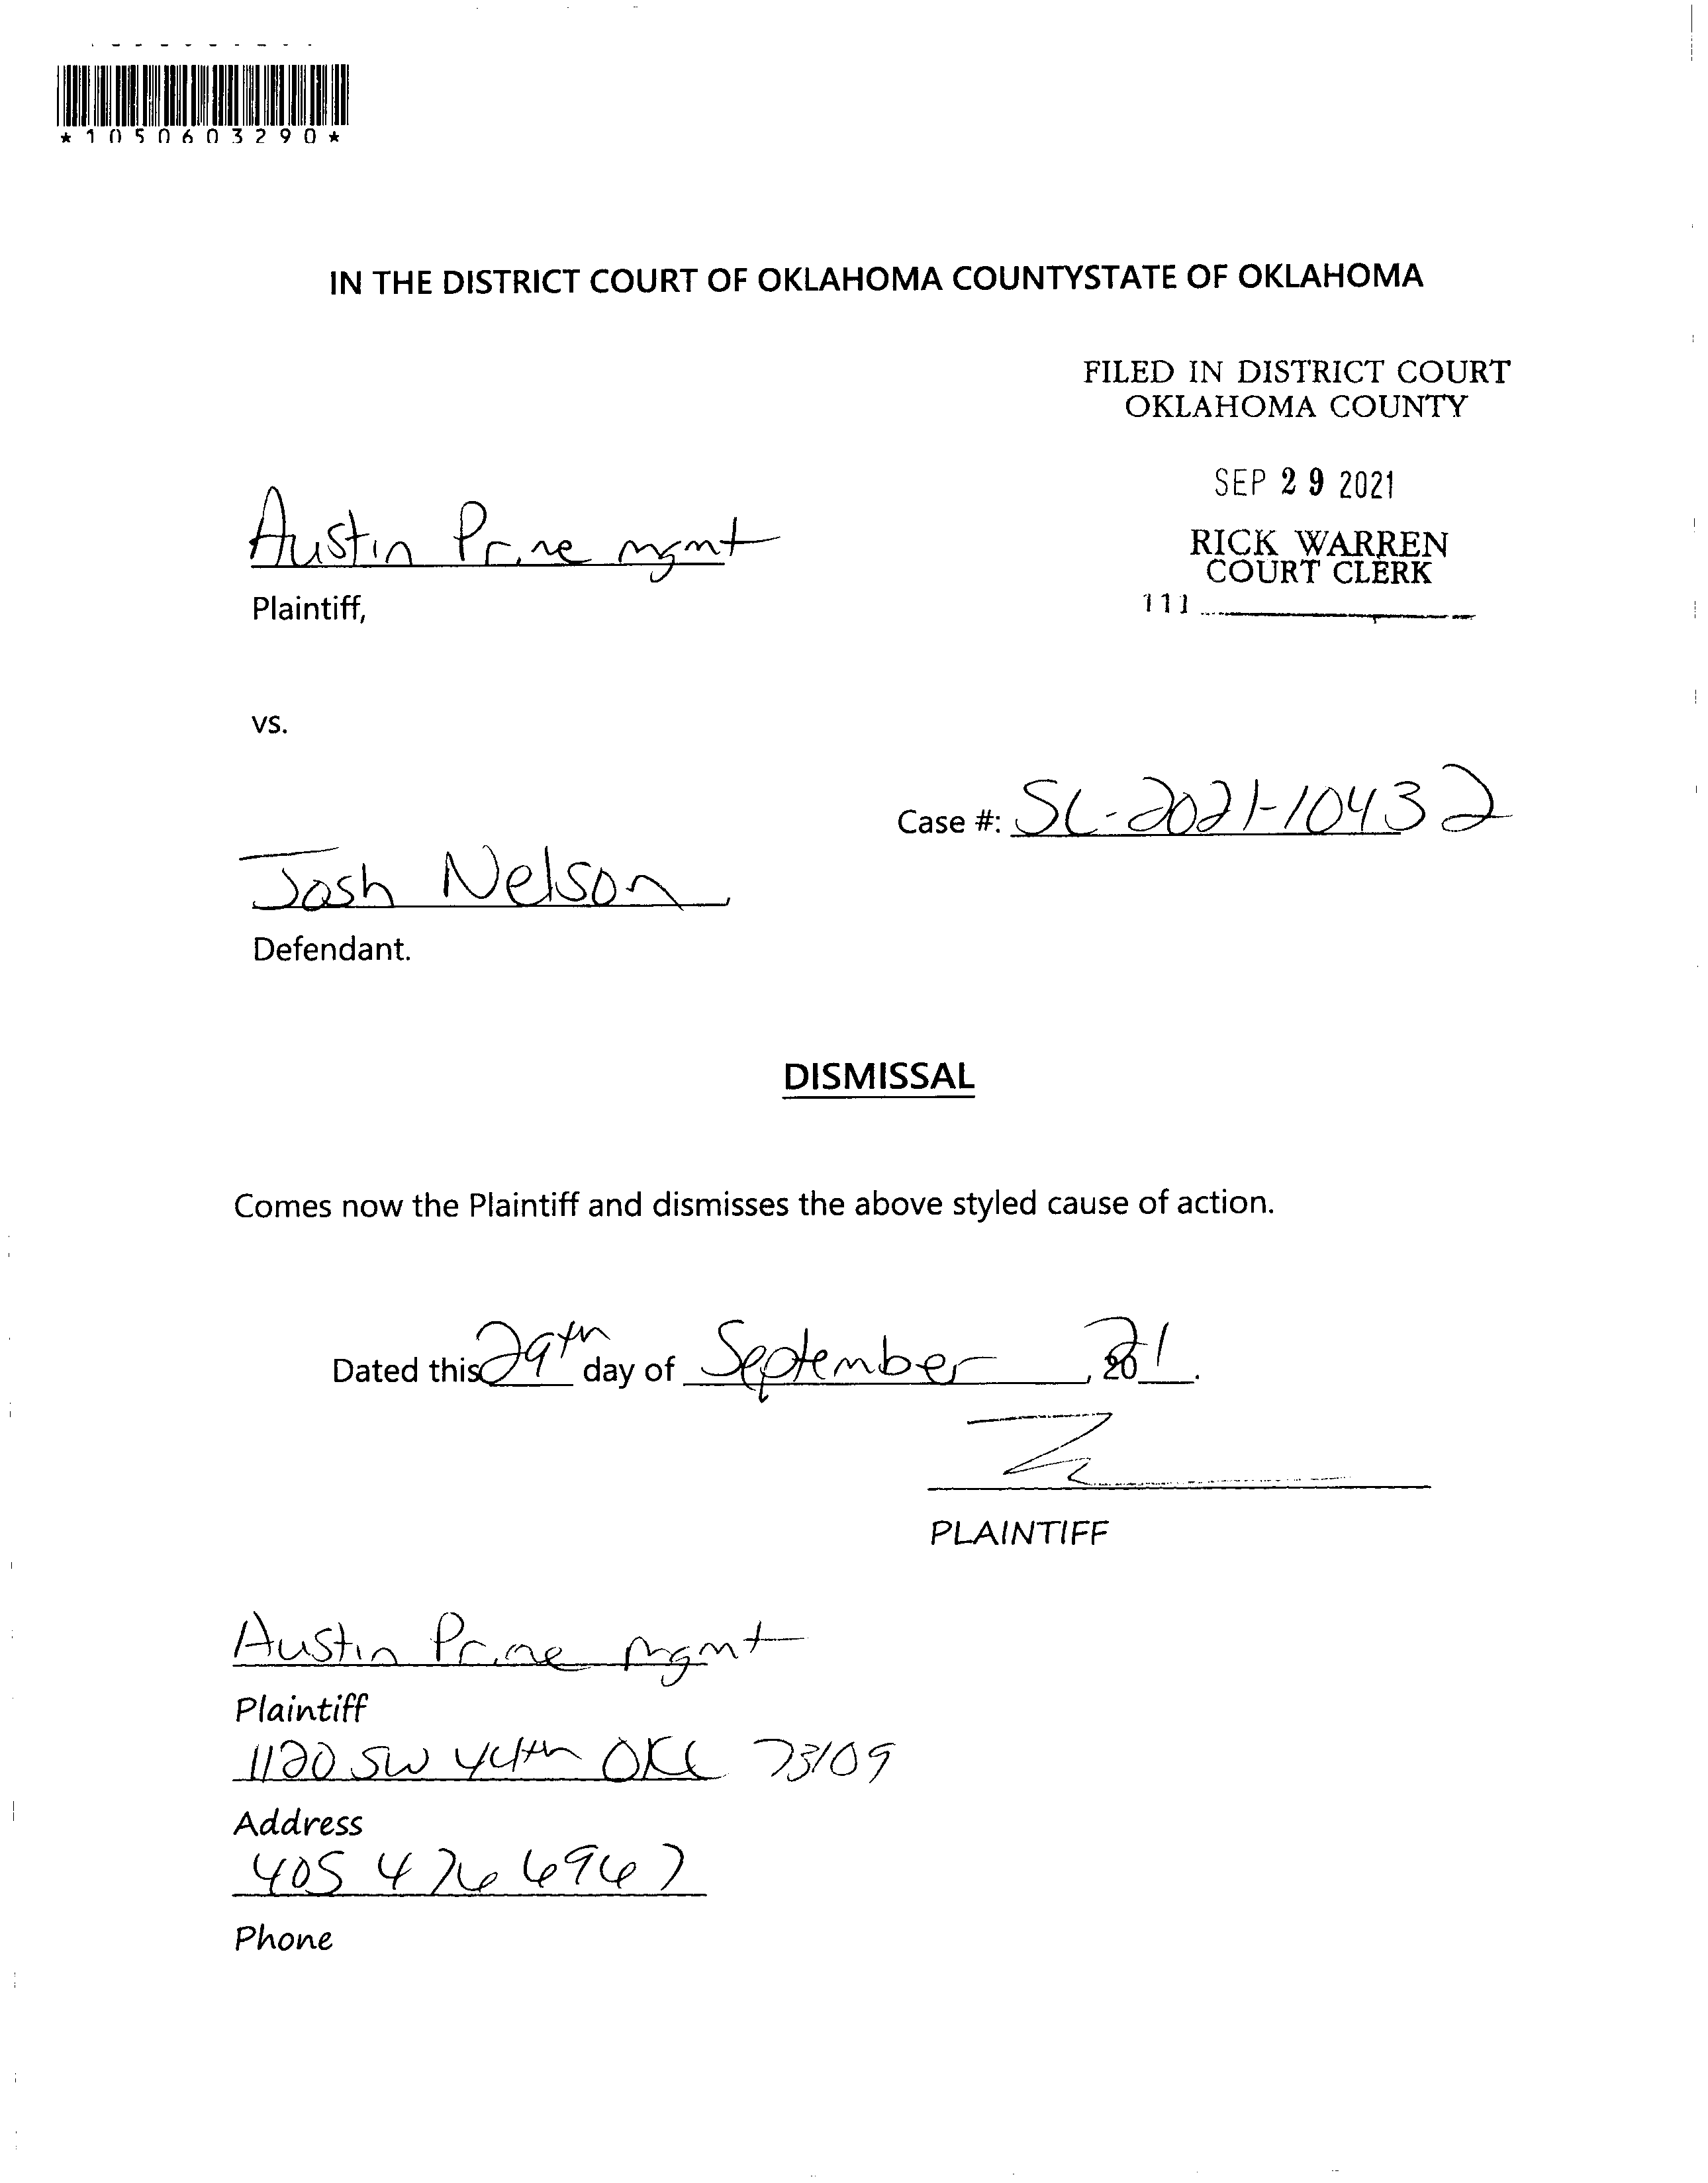 *1050603290*
IN THE DISTRICT COURT OF OKLAHOMA COUNTYSTATE OF OKLAHOMA
FILED IN DISTRICT COURT
OKLAHOMA COUNTY
SEP 29 2021
RICK WARREN
COURT CLERK
111
Austin Prine mgmt
Plaintiff,
vs.
Case #: SC-2021-10432
Josh Nelson
Defendant.
DISMISSAL
Comes now the Plaintiff and dismisses the above styled cause of action.
Dated this 29th day of September, 21.
PLAINTIFF
Austin Prine mgmt
Plaintiff
1120 SW 44th OKC 73109
Address
405 476 6967
Phone